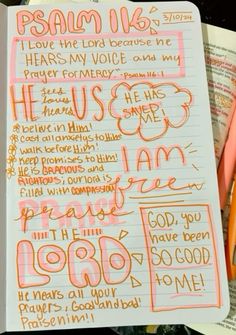 PSALM 116
3/10/24
I Love the Lord because he
HEARS MY VOICE and my
Prayer for MERCY. - Psalm 116:1
HE sees loves hears US
HE HAS
SAVED
ME
* believe in Him!
* cast all anxietys to Him!
* walk before Him!
* Keep promises to Him!
* He is GRACIOUS and
RIGHTOUS; our lord is
filled with COMPASSION
I AM
free
praise
PRAISE
THE
LORD
He hears all your
Prayers, Good and bad!
Praise him!!
GOD, you
have been
SO GOOD
to ME!